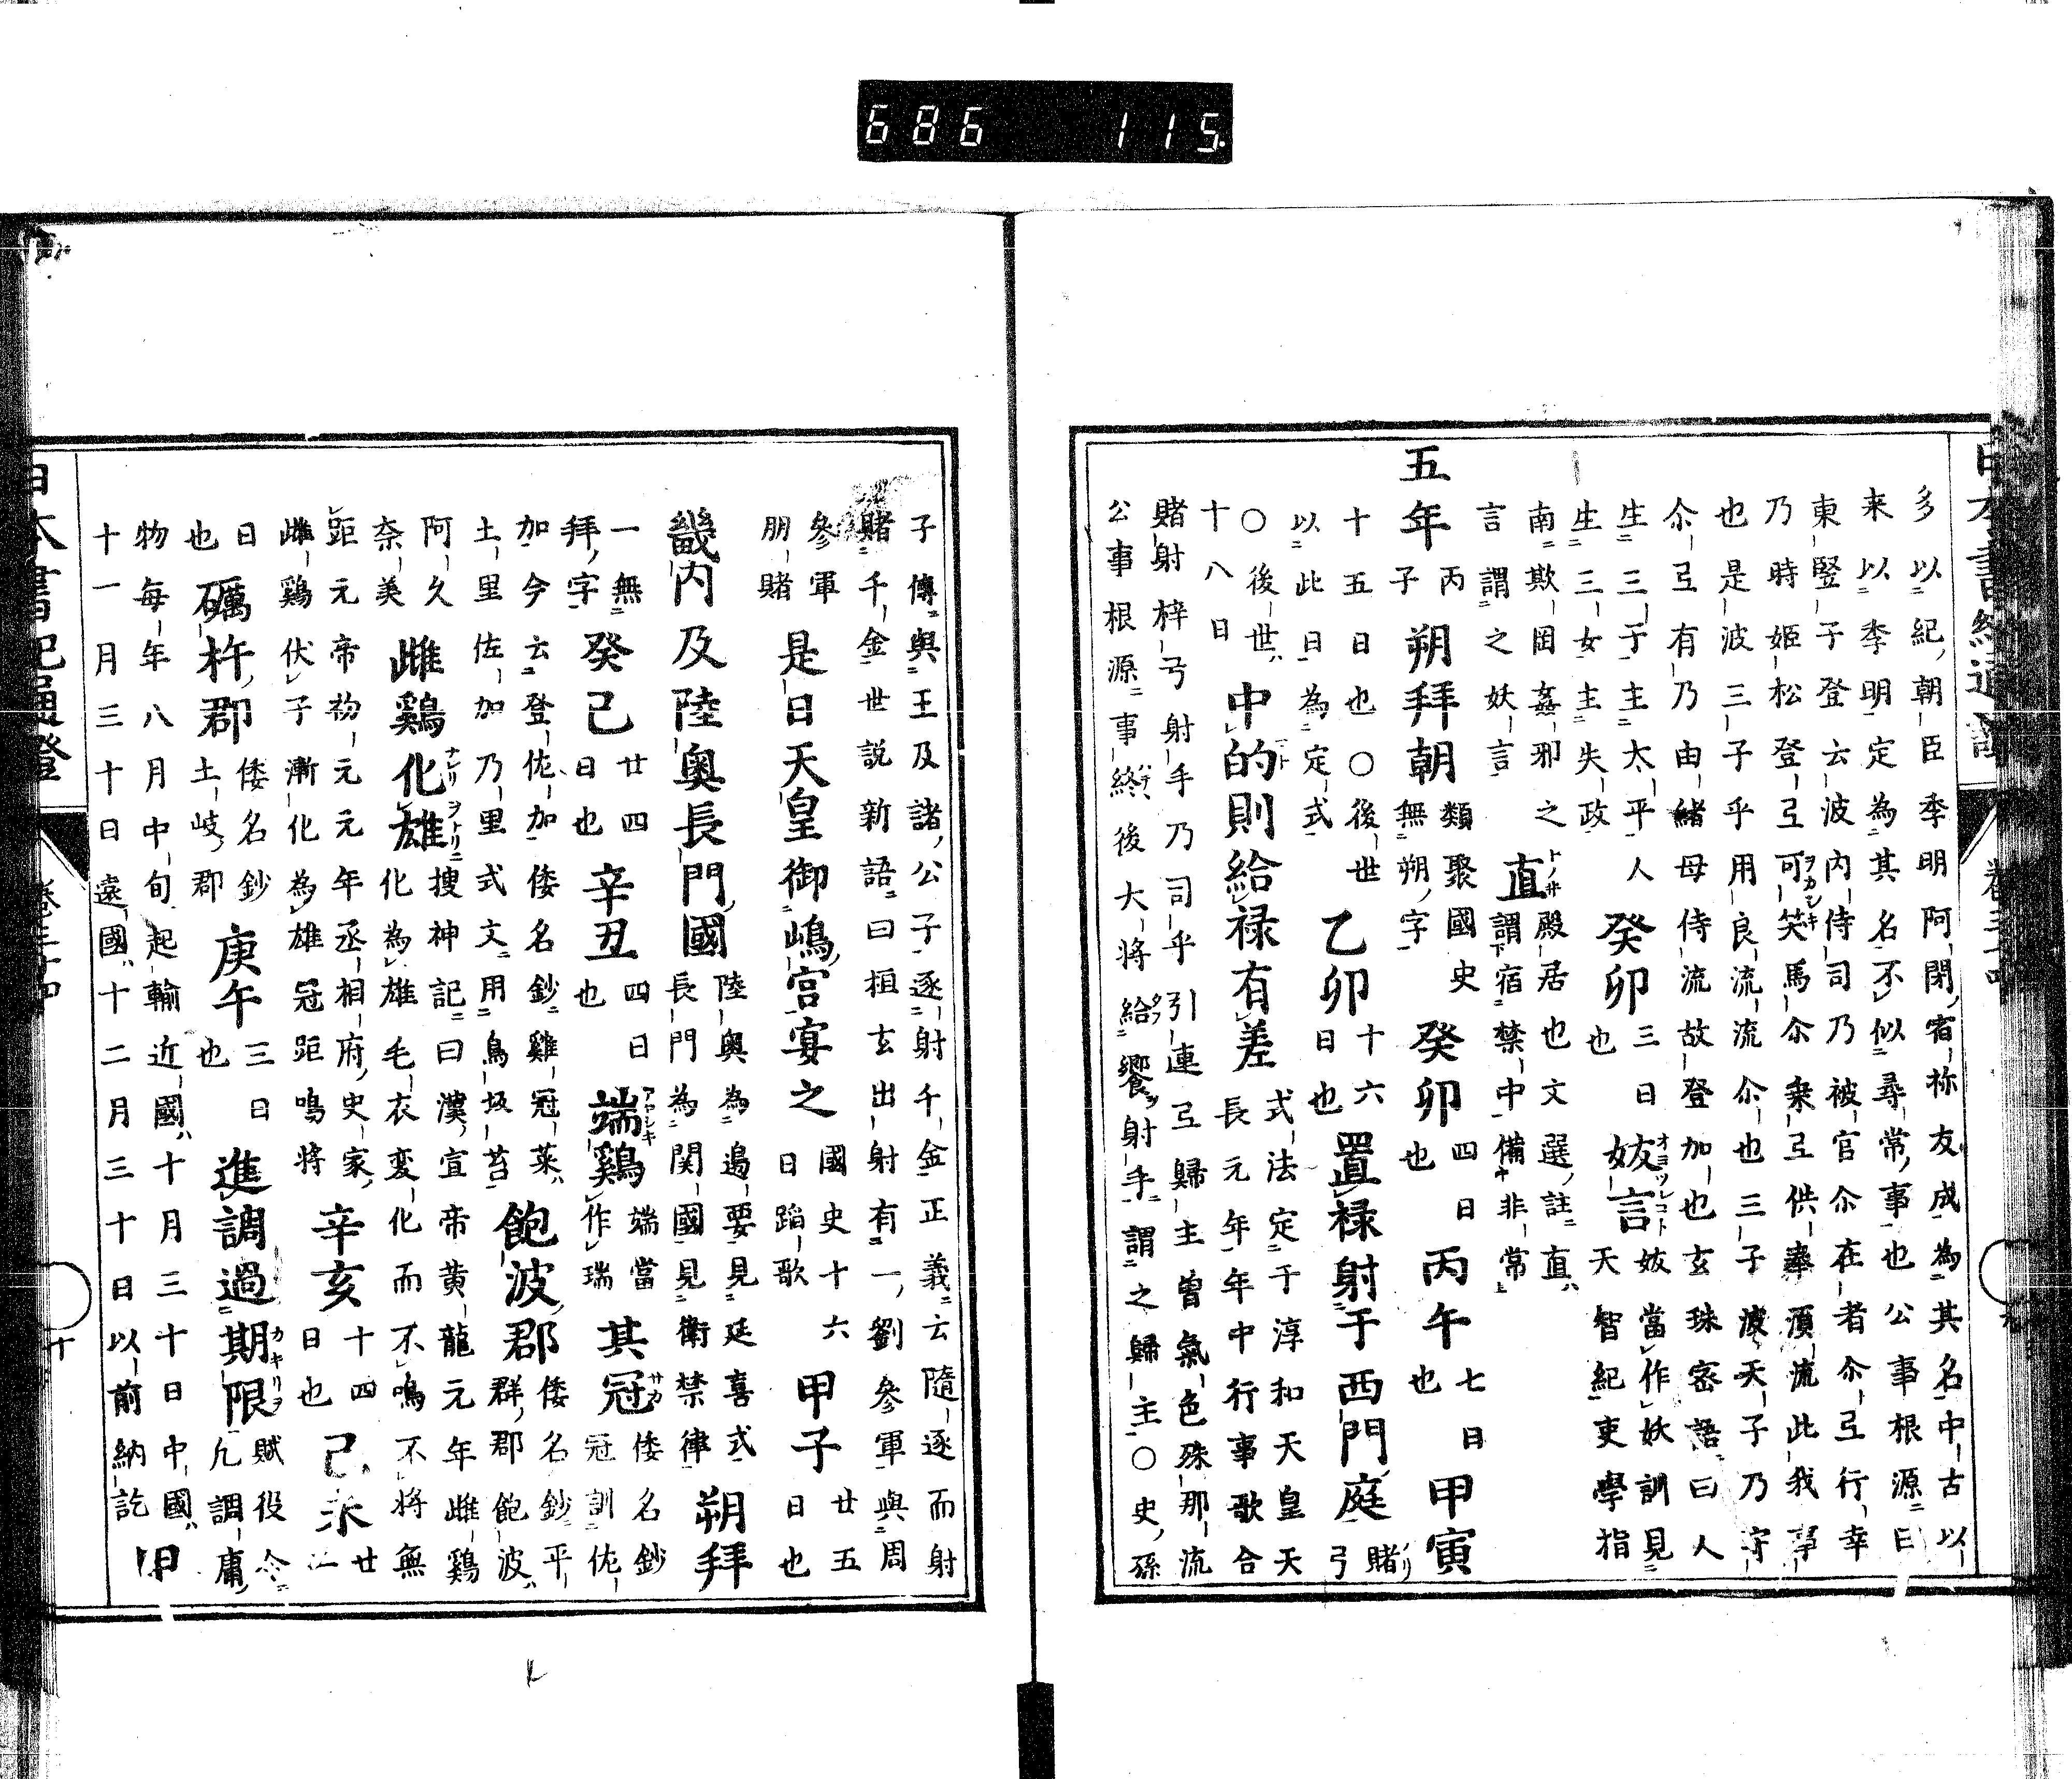 686 115
多以紀朝臣季明阿閉宿祢友成為其名中古以
来以季明定為其名不似尋常事也公事根源曰
東豎子登云波内侍司乃被官尒在者尒弖行幸
乃時姫松登弖可笑馬尒乗弖供奉須流此我事
也是波三子乎用良流流尒也三子波天子乃守
尒弖有乃由緒母侍流故登加也玄珠密語曰人
生三子主太平人
生三女主失政
癸卯
三日
也
妭言
妭當作妖訓見
天智紀吏學指
南欺罔姦邪之
言謂之妖言
直
殿居也文選註直
謂宿禁中備非常
五年
丙
子
朔拜朝
類聚國史
無朔字
癸卯
四日
也
丙午
七日
也
甲寅
十五日也○後世
以此日為定式
乙卯
十六
日也
置禄射于西門庭
賭
弓
○後世
十八日
中的則給禄有差
式法定于淳和天皇天
長元年年中行事歌合
賭射梓弓射手乃司乎引連弖歸主曽氣色殊那流
公事根源事終後大将給饗射手謂之歸主○史孫
子傳與王及諸公子逐射千金正義云隨逐而射
賭千金世説新語曰桓玄出射有一劉參軍與周
參軍
朋賭
是日天皇御嶋宮宴之
國史十六
日蹈歌
甲子
廿五
日也
畿内及陸奥長門國
陸奥為邉要見延喜式
長門為関國見衛禁律
朔拜
一無
拜字
癸己
廿四
日也
辛丑
四日
也
端鷄
端當
作瑞
其冠
倭名鈔
冠訓佐
加今云登佐加倭名鈔雞冠菜倭名鈔平
土里佐加乃里式文用鳥坂苔
飽波郡
群郡飽波
阿久
奈美
雌鷄化雄
捜神記曰漢宣帝黄龍元年雌鷄
化為雄毛衣変化而不鳴不将無
距元帝初元元年丞相府史家
雌鷄伏子漸化為雄冠距鳴将
辛亥
十四
日也
己未
廿
日
也
礪杵郡
倭名鈔
土岐郡
庚午
三日
也
進調過期限
賦役令
凢調庸
物毎年八月中旬起輸近國十月三十日中國
十一月三十日遠國十二月三十日以前納訖
甲
日本書紀通證
卷三十四
十